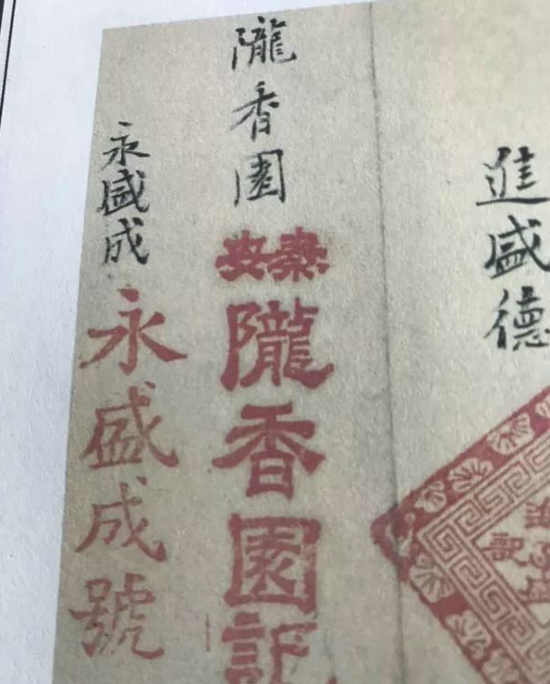 進盛德
隴香園
秦安
隴香園記
永盛成
永盛成號